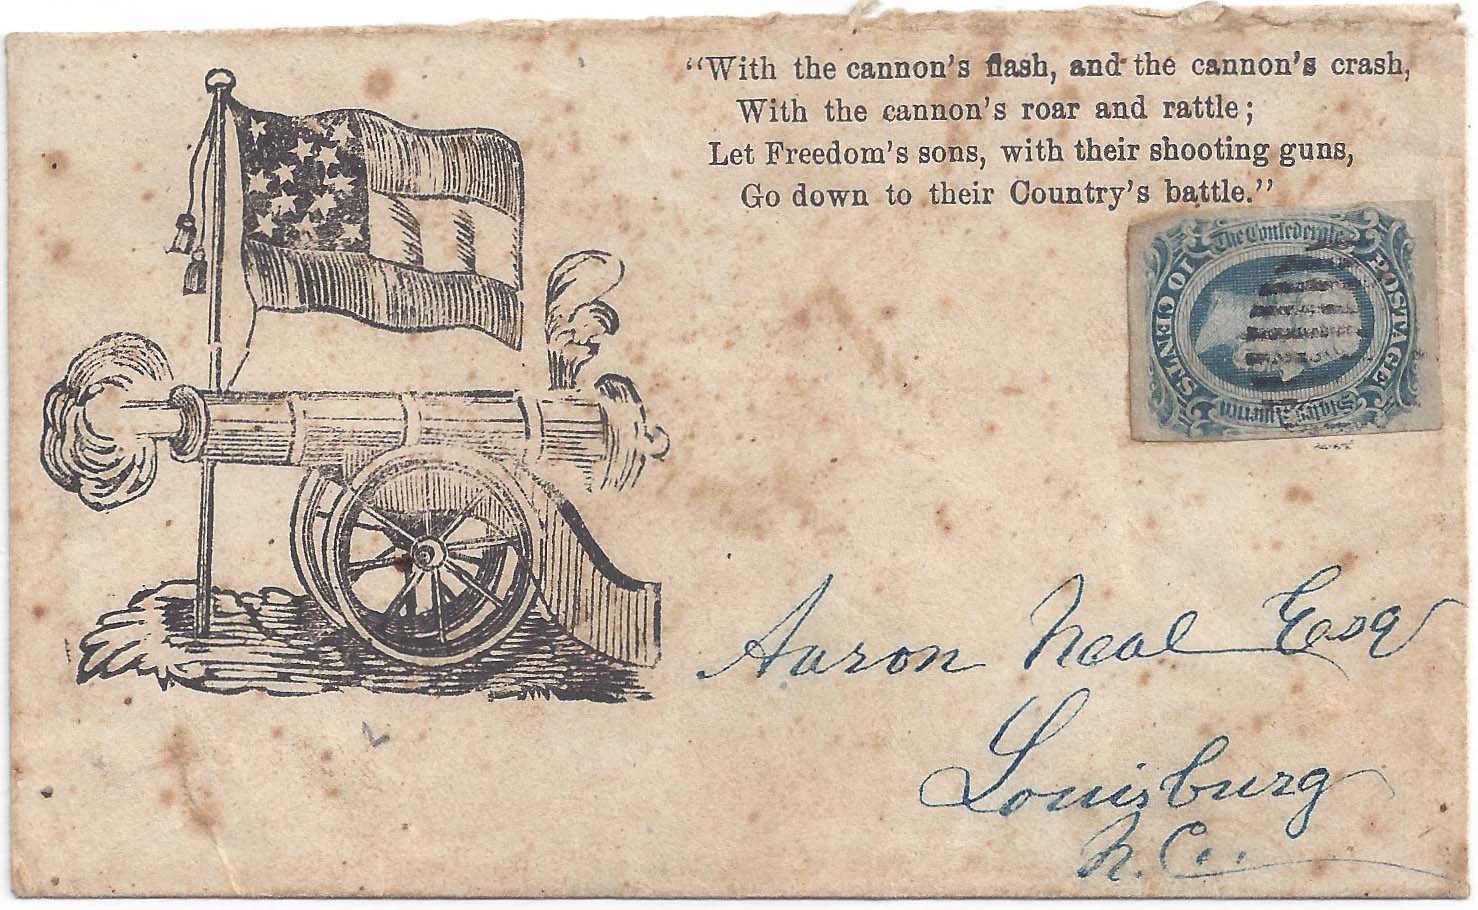 “With the cannon's flash, and the cannon's crash,
With the cannon's roar and rattle;
Let Freedom's sons, with their shooting guns,
Go down to their Country's battle.”
The Confederate
States of America
POSTAGE
TEN CENTS
Aaron Neal Esq
Louisburg
N.C.